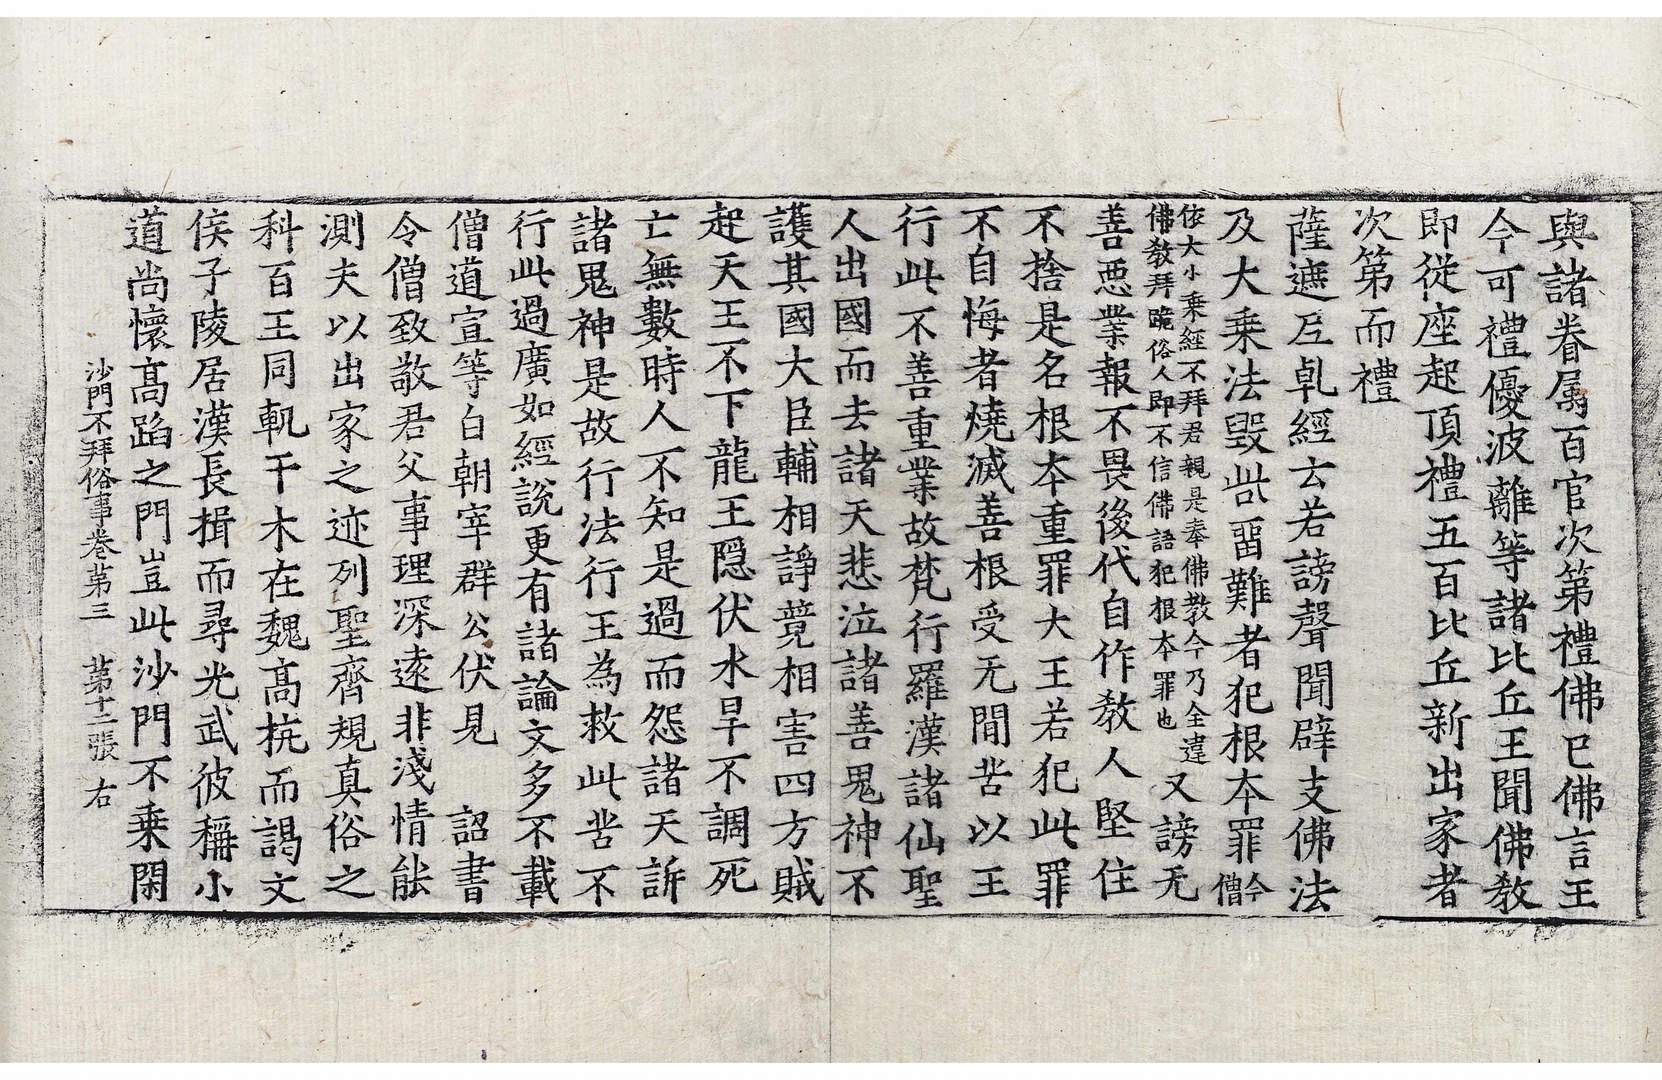 與諸眷屬百官次第禮佛已佛言王
今可禮優波離等諸比丘王聞佛敎
即從座起頂禮五百比丘新出家者
次第而禮
薩遮尼乹經云若謗聲聞辟支佛法
及大乗法毀呰畱難者犯根夲罪今僧
依大小乗經不拜君親是奉佛敎今乃全違
佛敎拜跪俗人即不信佛語犯根夲罪也又謗无
善惡業報不畏後代自作敎人堅住
不捨是名根夲重罪大王若犯此罪
不自悔者燒滅善根受无間苦以王
行此不善重業故梵行羅漢諸仙聖
人出國而去諸天悲泣諸善鬼神不
護其國大臣輔相諍竟相害四方賊
起天王不下龍王隐伏水旱不調死
亡無數時人不知是過而怨諸天訴
諸鬼神是故行法行王為救此苦不
行此過廣如經說更有諸論文多不載
僧道宣等白朝宰群公伏見 詔書
令僧致敬君父事理深遠非淺情能
測夫以出家之迹列聖齊規真俗之
科百王同軌干木在魏高抗而謁文
侯子陵居漢長揖而尋光武彼稱小
道尚懷高蹈之門豈此沙門不乗閑
沙門不拜俗事卷第三 第十二張 右